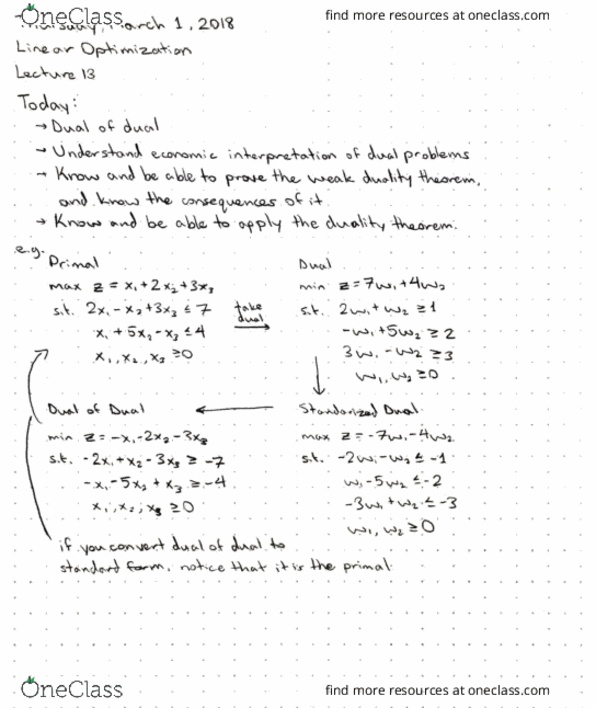 OneClass
find more resources at oneclass.com
Thursday, March 1, 2018
Linear Optimization
Lecture 13
Today:
→ Dual of dual
→ Understand economic interpretation of dual problems
→ Know and be able to prove the weak duality theorem,
and know the consequences of it.
→ Know and be able to apply the duality theorem.
e.g.
Primal
max z = x₁+2x₂+3x₃
s.t. 2x₁-x₂+3x₃ ≤ 7
x₁+5x₂-x₃ ≤ 4
x₁, x₂, x₃ ≥ 0
take
dual
Dual
min z = 7w₁+4w₂
s.t. 2w₁+w₂ ≥ 1
-w₁+5w₂ ≥ 2
3w₁-w₂ ≥ 3
w₁, w₂ ≥ 0
Standarized Dual
max z = -7w₁-4w₂
s.t. -2w₁-w₂ ≤ -1
w₁-5w₂ ≤ -2
-3w₁+w₂ ≤ -3
w₁, w₂ ≥ 0
Dual of Dual
min z = -x₁-2x₂-3x₃
s.t. -2x₁+x₂-3x₃ ≥ -7
-x₁-5x₂+x₃ ≥ -4
x₁, x₂, x₃ ≥ 0
if you convert dual of dual to
standard form, notice that it is the primal.
OneClass
find more resources at oneclass.com